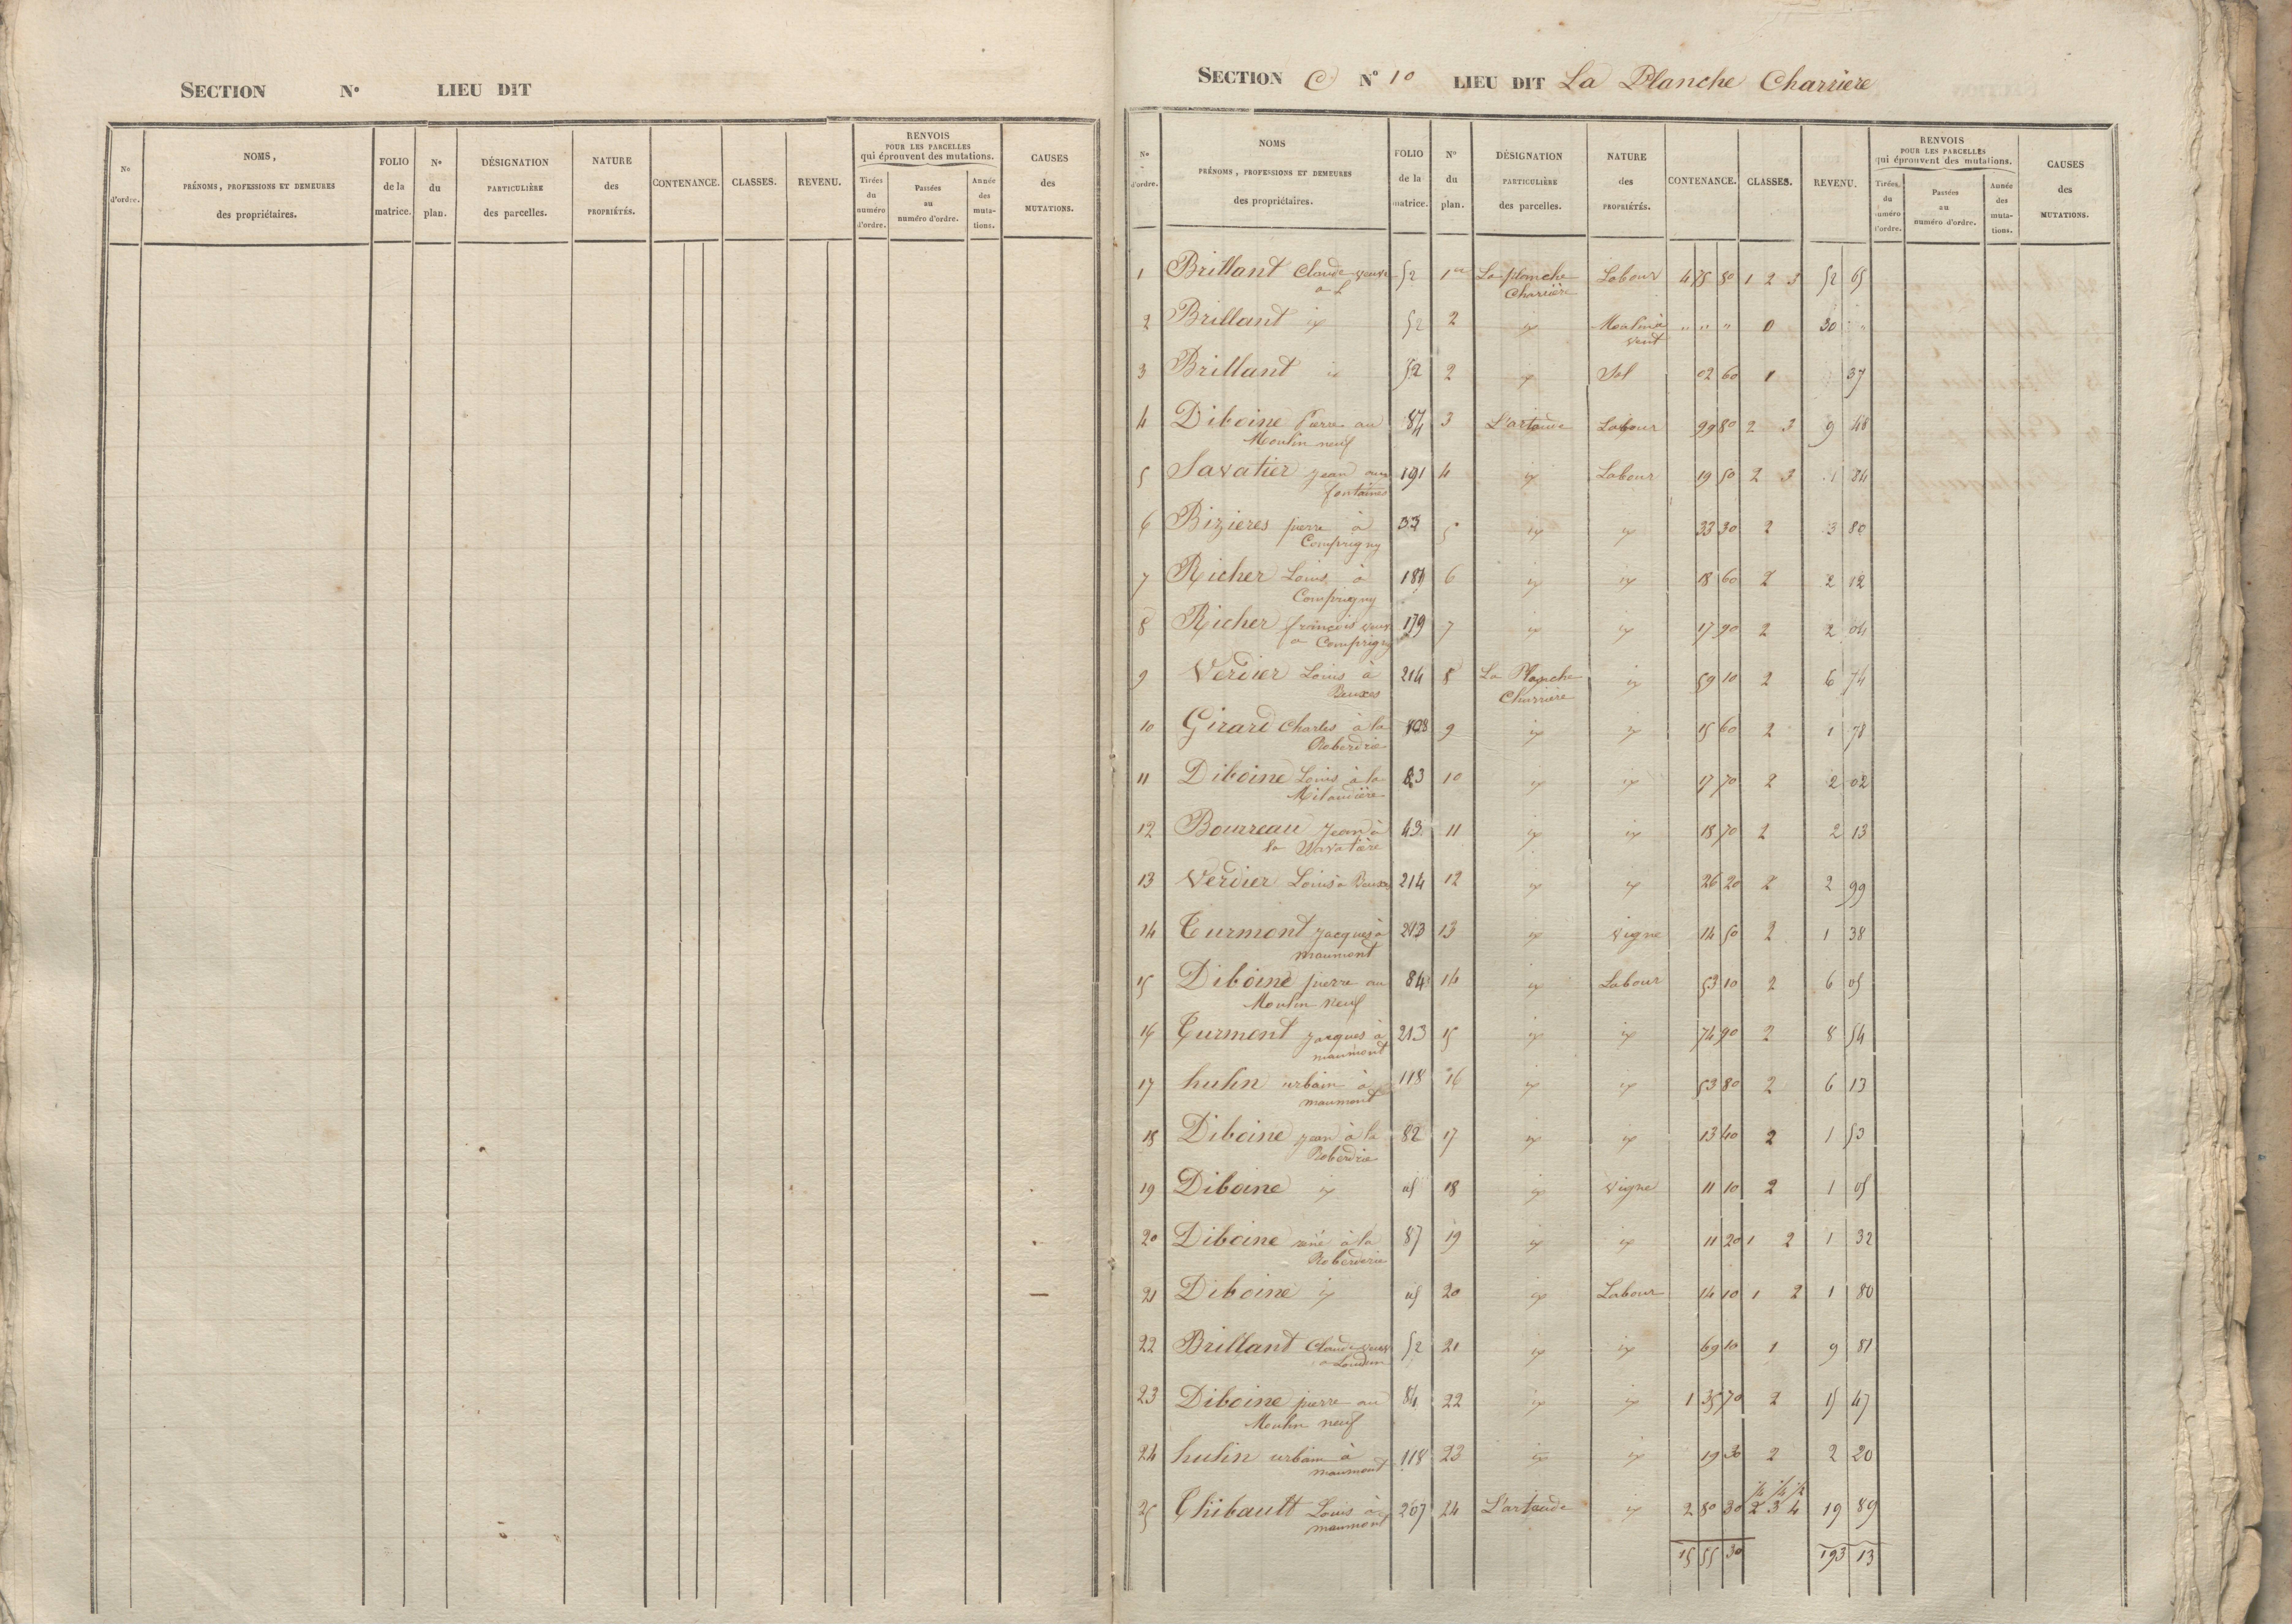 SECTION No LIEU DIT
No d'ordre. NOMS, PRÉNOMS, PROFESSIONS ET DEMEURES des propriétaires. FOLIO de la matrice. No du plan. DÉSIGNATION PARTICULIÈRE des parcelles. NATURE des PROPRIÉTÉS. CONTENANCE. CLASSES. REVENU. RENVOIS POUR LES PARCELLES qui éprouvent des mutations. Tirées du numéro d'ordre. Passées au numéro d'ordre. Année des mutations. CAUSES des MUTATIONS.
SECTION C No 10 LIEU DIT La Planche Charriere
No d'ordre. NOMS PRÉNOMS, PROFESSIONS ET DEMEURES des propriétaires. FOLIO de la matrice. No du plan. DÉSIGNATION PARTICULIÈRE des parcelles. NATURE des PROPRIÉTÉS. CONTENANCE. CLASSES. REVENU. RENVOIS POUR LES PARCELLES qui éprouvent des mutations. Tirées du numéro d'ordre. Passées au numéro d'ordre. Année des mutations. CAUSES des MUTATIONS.
1 Brillant Claude veuve 52 1er La planche Labour 4 75 50 1 2 3 52 65
a L Charrière
2 Brillant id 52 2 id Moulin à " " " 0 30 "
vent
3 Brillant id 52 2 id Sol 02 60 1 37
4 Diboine Pierre au 84 3 L'artaude Labour 99 80 2 3 9 48
Moulin neuf
5 Savatier Jean aux 191 4 id Labour 19 50 2 3 1 84
fontaines
6 Bizieres pierre à 33 5 id id 33 30 2 3 80
Comprigny
7 Richer Louis à 181 6 id id 18 60 2 2 12
Comprigny
8 Richer françois veuve 179 7 id id 17 90 2 2 04
a Comprigny
9 Verdier Louis à 214 8 La Planche id 59 10 2 6 74
Beuxes Charriere
10 Girard Charles à la 108 9 id id 15 60 2 1 78
Roberdrie
11 Diboine Louis à la 83 10 id id 17 70 2 2 02
Milaudière
12 Bourreau Jean à 43 11 id id 18 70 2 2 13
la Savatière
13 Verdier Louis à Beuxes 214 12 id id 26 20 2 2 99
14 Turmont Jacques à 213 13 id vigne 14 50 2 1 38
maumont
15 Diboine pierre au 84 14 id Labour 53 10 2 6 05
Moulin neuf
16 Turmont Jacques à 213 15 id id 74 90 2 8 54
maumont
17 hulin urbain à 118 16 id id 53 80 2 6 13
maumont
18 Diboine jean à la 82 17 id id 13 40 2 1 53
Roberdrie
19 Diboine id id 18 id vigne 11 10 2 1 05
20 Diboine rené à la 87 19 id id 11 20 1 2 1 32
Roberderie
21 Diboine id id 20 id Labour 14 10 1 2 1 80
22 Brillant Claude veuve 52 21 id id 69 10 1 9 81
a Loudun
23 Diboine pierre au 84 22 id id 1 35 70 2 15 47
Moulin neuf
24 hulin urbain à 118 23 id id 19 30 2 2 20
maumont
25 Thibault Louis à 207 24 L'artaude id 2 80 30 2 3 4 19 89
maumont
15 55 30 193 13